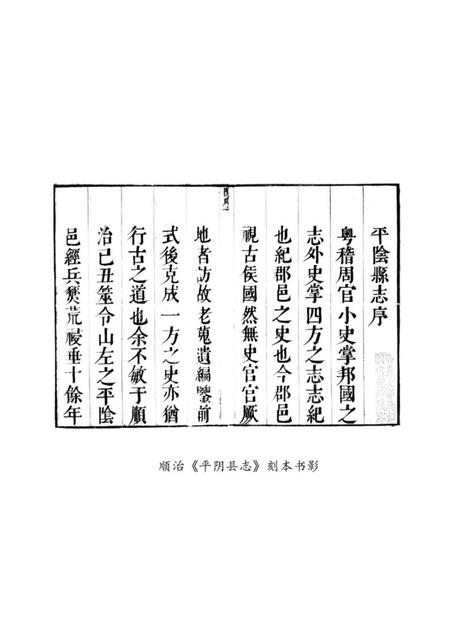 平陰縣志序
粤稽周官小史掌邦國之
志外史掌四方之志志紀
也紀郡邑之史也今郡邑
視古侯國然無史官官厥
地者訪故老蒐遺編鑒前
式後克成一方之史亦猶
行古之道也余不敏于順
治己丑筮令山左之平陰
邑經兵燹荒祲垂十餘年
顺治《平阴县志》刻本书影